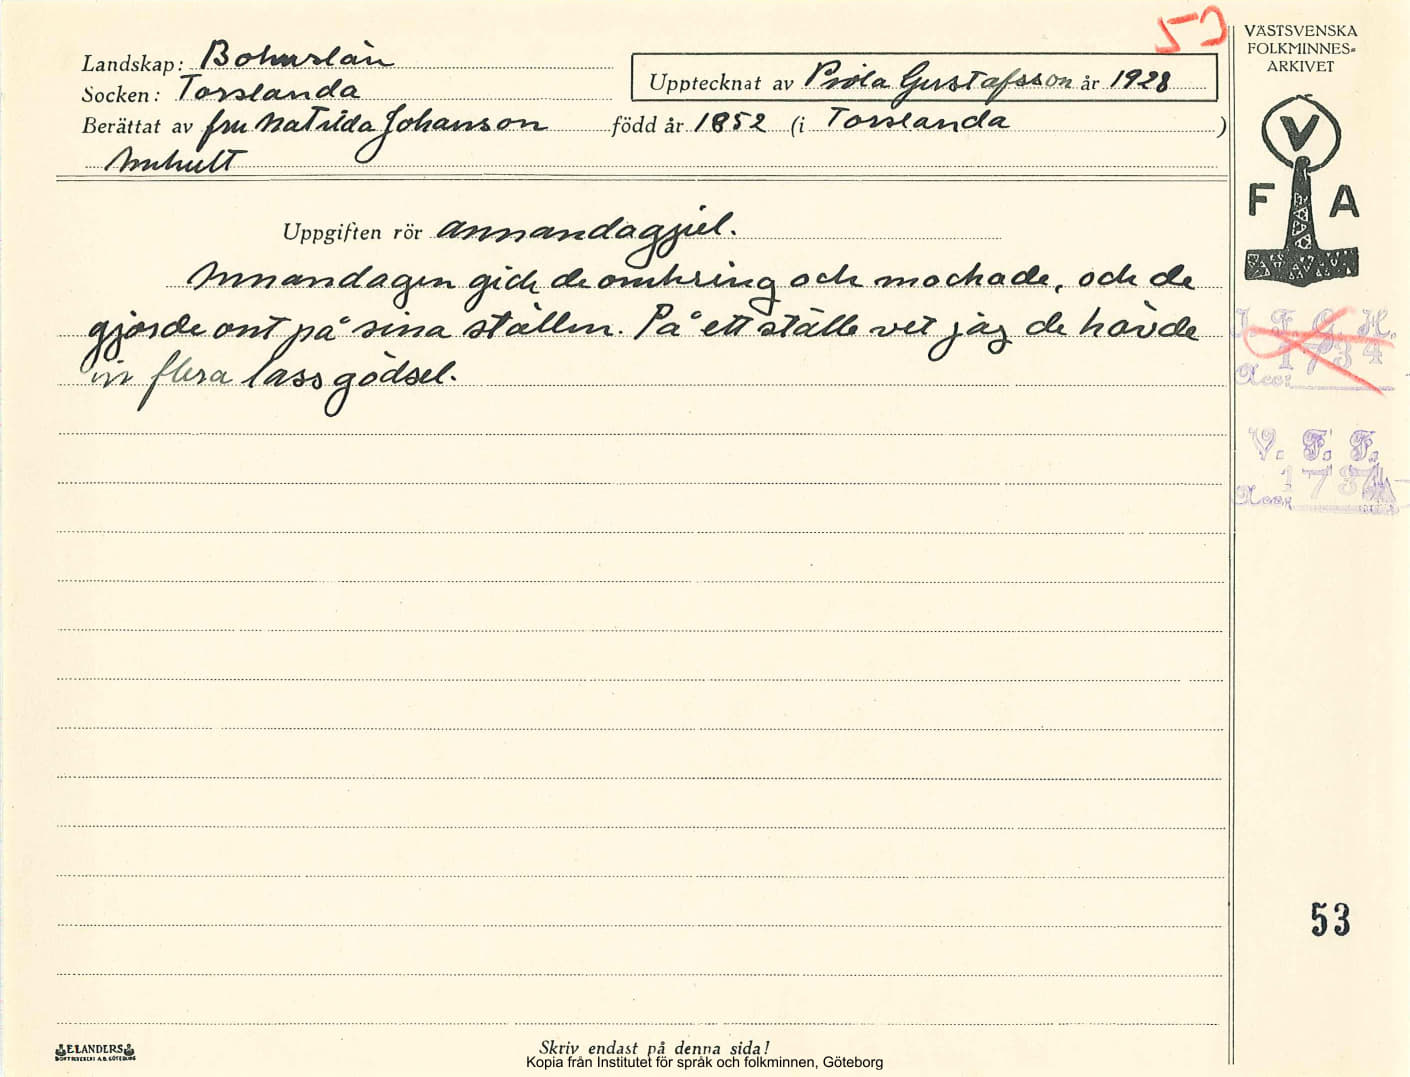 53
VÄSTSVENSKA
FOLKMINNES-
ARKIVET
Landskap: Bohuslän
Socken: Torslanda
Upptecknat av Viola Gustafsson år 1928
Berättat av fru Matilda Johansson född år 1852 (i Torslanda )
Amhult
V
F A
Uppgiften rör annandagsjul.
Annandagen gick de omkring och mockade, och de
gjorde ont på sina ställen. På ett ställe vet jag de hävde
in flera lass gödsel.
I. F. G. H.
1734
Acc:
V. F. F.
Acc:
53
ELANDERS
BOKTRYCKERI A.B. GÖTEBORG
Skriv endast på denna sida!
Kopia från Institutet för språk och folkminnen, Göteborg